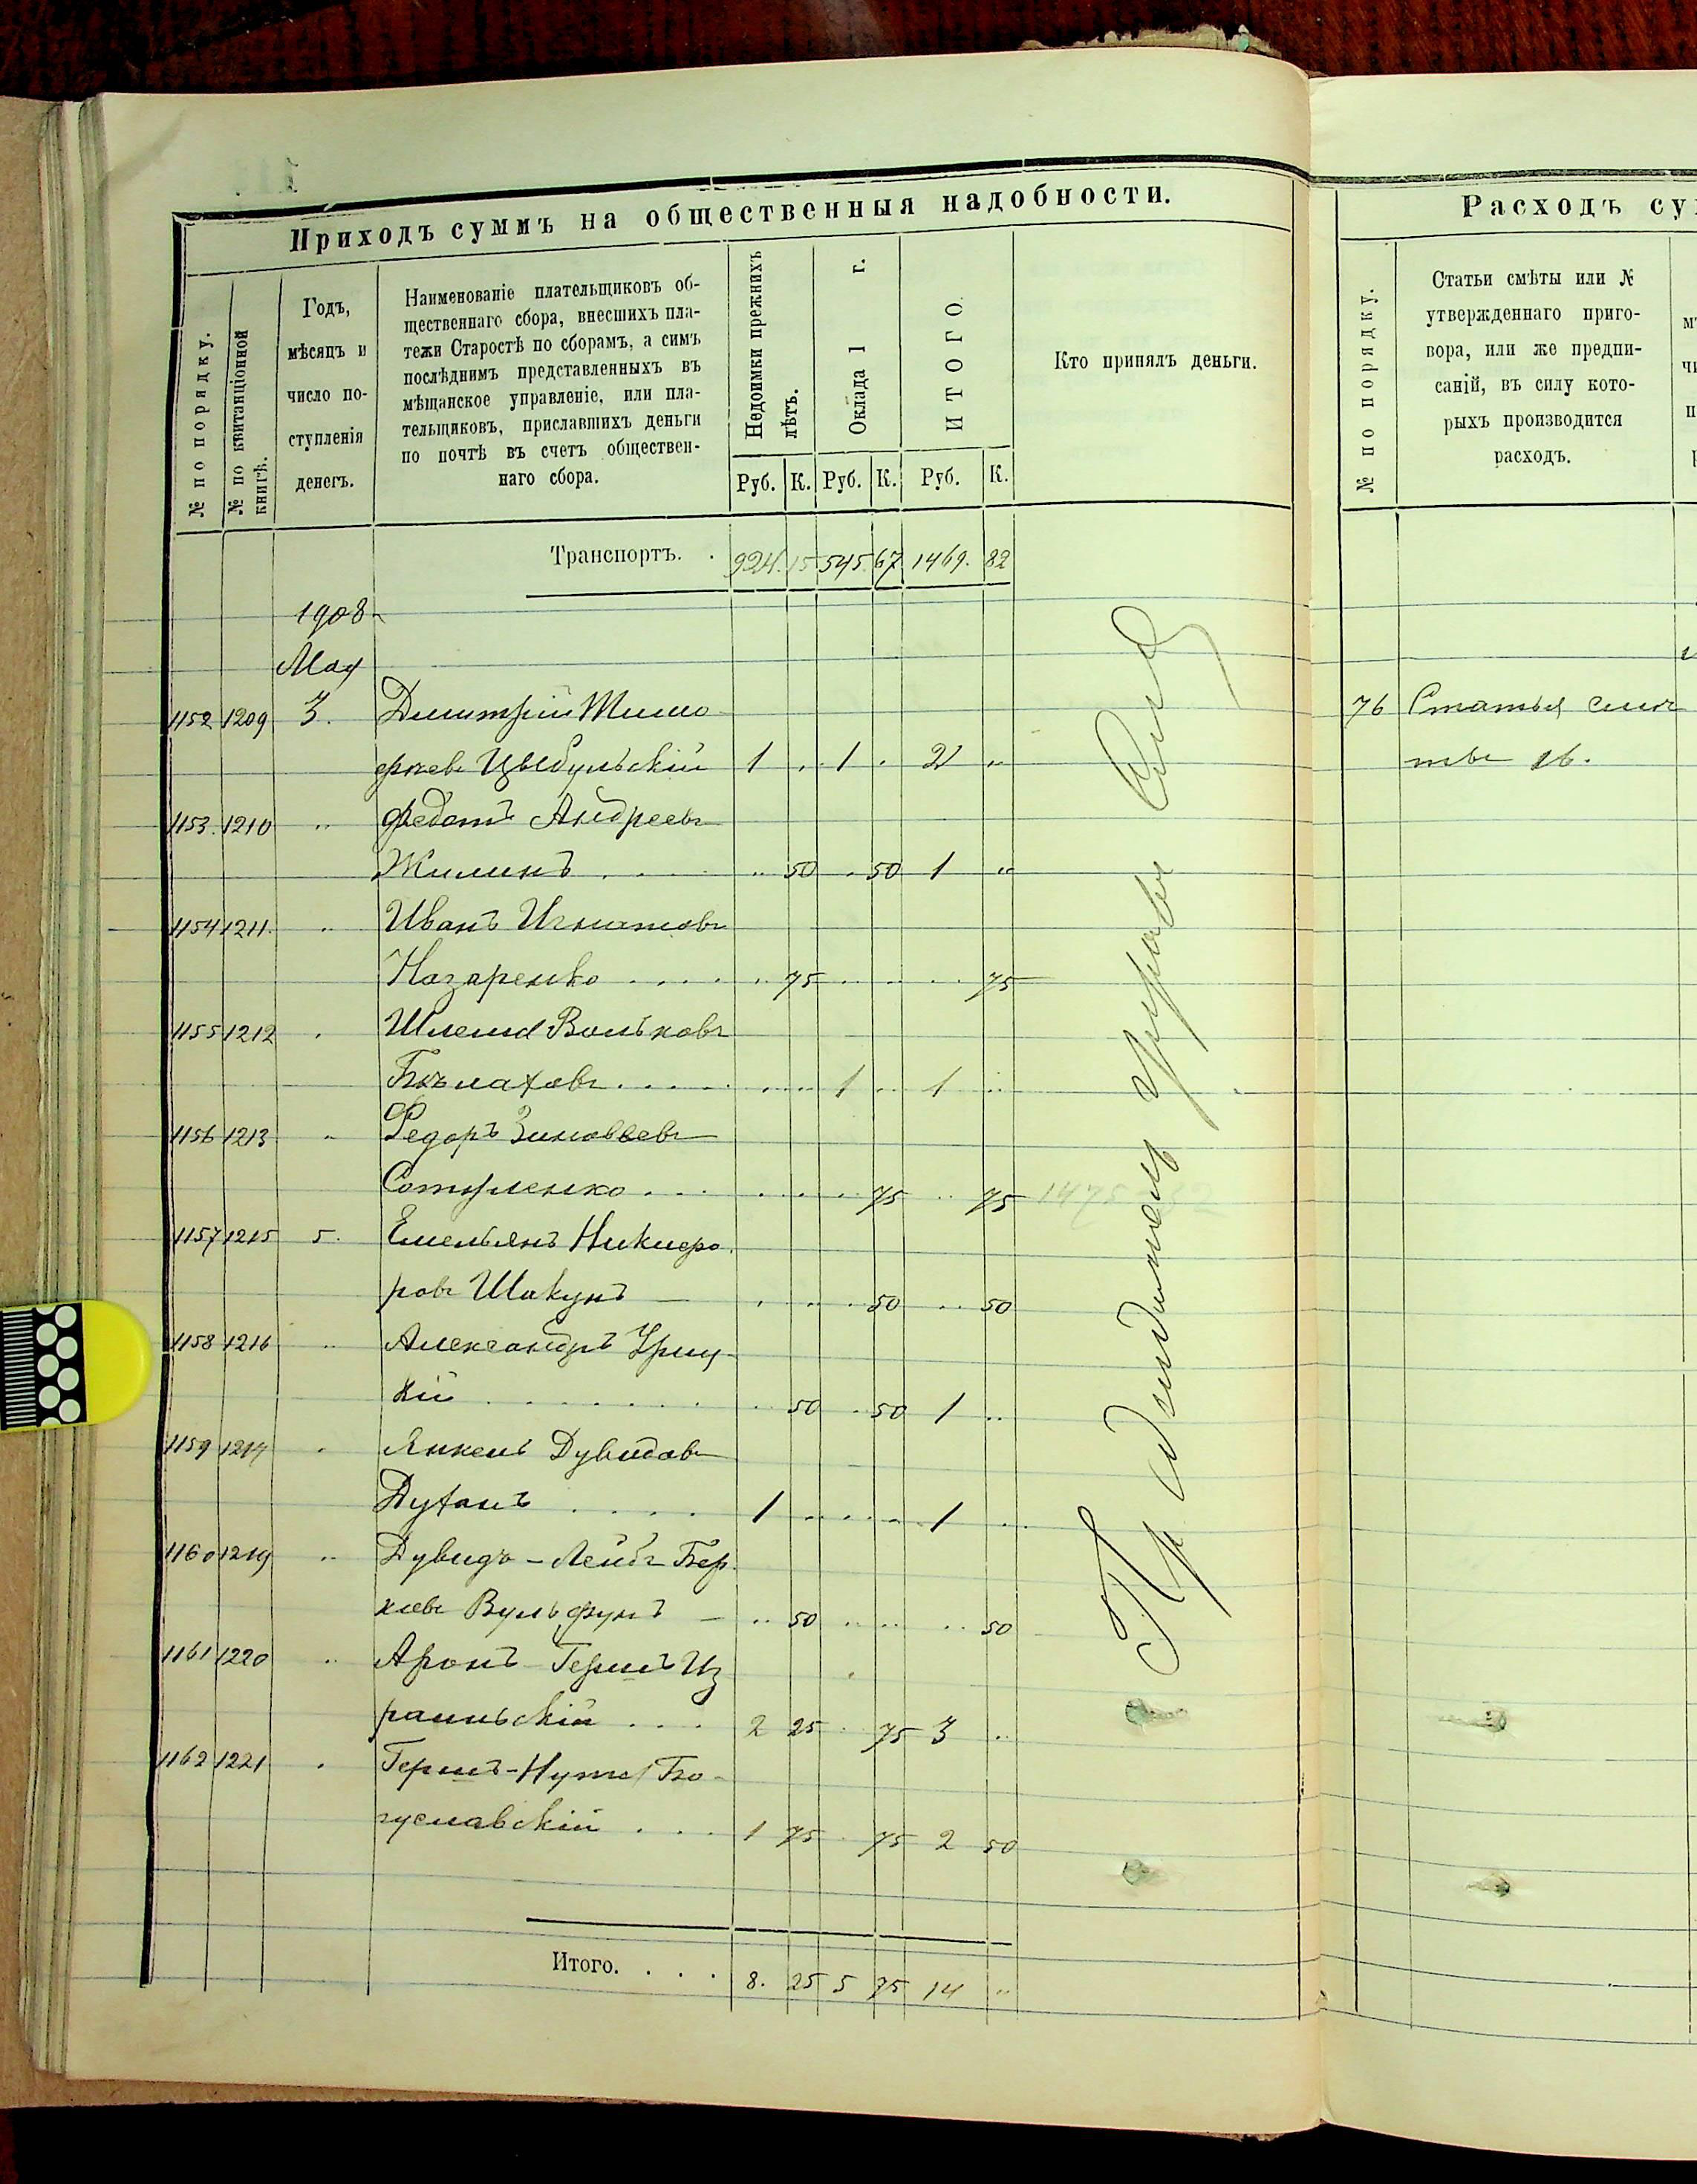 Приходъ суммъ на общественныя надобности.
№ по порядку.
№ по квитанціонной книгѣ.
Годъ,
мѣсяцъ и
число по-
ступленія
денегъ.
Наименованіе плательщиковъ об-
щественнаго сбора, внесшихъ пла-
тежи Старостѣ по сборамъ, а симъ
послѣднимъ представленныхъ въ
мѣщанское управленіе, или пла-
тельщиковъ, приславшихъ деньги
по почтѣ въ счетъ обществен-
наго сбора.
Недоимки прежнихъ лѣтъ.
Оклада 1 г.
ИТОГО.
Кто принялъ деньги.
Руб. К. Руб. К. Руб. К.
Транспортъ. . 924. 15 545. 67 1469. 82
1908
Мая
1152 1209 3. Дмитрій Тимо
феевъ Цыбульскій 1 . . 1 . 2 "
1153. 1210 " Федотъ Андреевъ
Жилинъ . . . " 50 . 50 1 "
1154 1211. " Иванъ Игнатовъ
Назаренко . . . . . . 75 . . . . . . 75
1155 1212 . Шлема Вольковъ
. . . . . . . . . 1 . . 1 . .
1156 1213 " Федоръ Зиновьевъ
. . . . . . . 75 . . 75
1157 1215 5. Емельянъ Никифо
ровъ Шакунъ — . . . . 50 . . 50
1158 1216 " Александръ Уриц-
кій . . . . . . . . 50 . 50 1 . .
1159 1217 . Янкель Дувидовъ
Духанъ . . . . 1 . . . . . . 1 . .
1160 1219 " Дувидъ-Лейбъ Бер
ковъ Вульфунъ — " 50 . . . . . . 50
1161 1220 " Аронъ Гершъ Из
раильскій . . . 2 25 . 75 3 .
1162 1221 . Гершъ-Нута Бо-
гуславскій . . . 1 75 . 75 2 50
Итого. . . . 8. 25 5 75 14 "
Расходъ су
№ по порядку.
Статьи смѣты или №
утвержденнаго приго-
вора, или же предпи-
саній, въ силу кото-
рыхъ производится
расходъ.
76 Статья смѣ
ты 16.